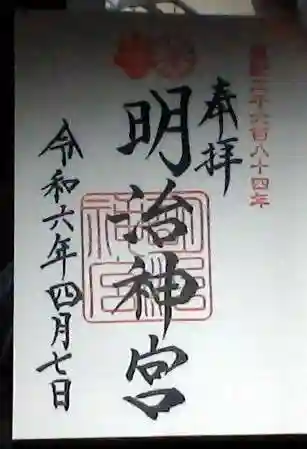 皇紀二千六百八十四年
奉拝
明治神宮
令和六年四月七日